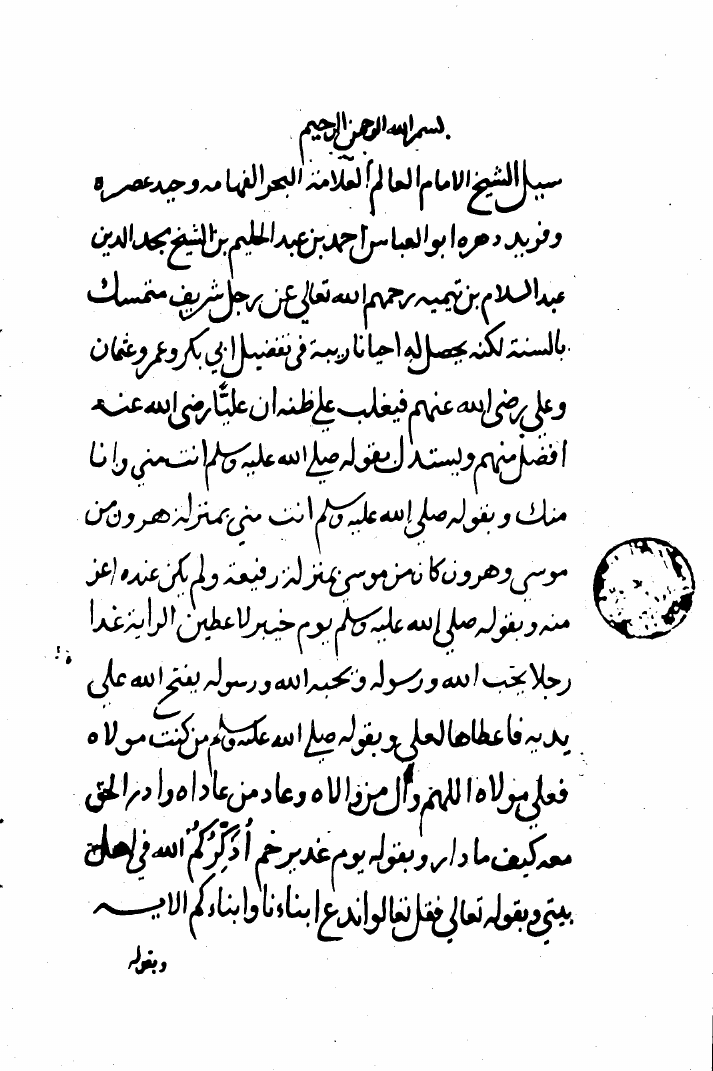 بسم الله الرحمن الرحيم
سيل الشيخ الامام العالم العلامة البحر الفهامه وحيد عصره
وفريد دهره ابو العباس احمد بن عبد الحليم بن الشيخ مجد الدين
عبد السلام بن تيميه رحمهم الله تعالى عن رجل شريف متمسك
بالسنة لكنه يحصل له احيانا ريبة في تفضيل ابي بكر وعمر وعثمان
وعلي رضي الله عنهم فيغلب على ظنه ان عليًّا رضي الله عنه
افضل منهم ويستدل بقوله صلى الله عليه وسلم انت مني وانا
منك وبقوله صلى الله عليه وسلم انت مني بمنزلة هرون من
موسى وهرون كان من موسى بمنزلة رفيعة ولم يكن عنده اعز
منه وبقوله صلى الله عليه وسلم يوم خيبر لاعطين الراية غدا
رجلا يحب الله ورسوله ويحبه الله ورسوله يفتح الله على
يديه فاعطاها لعلي وبقوله صلى الله عليه وسلم من كنت مولاه
فعلي مولاه اللهم وال من والاه وعاد من عاداه وادر الحق
معه كيف ما دار وبقوله يوم غدير خم أُذَكِّرُكُمُ الله في اهل
بيتي وبقوله تعالى فقل تعالوا ندع ابناءنا وابناءكم الايه
وبقوله